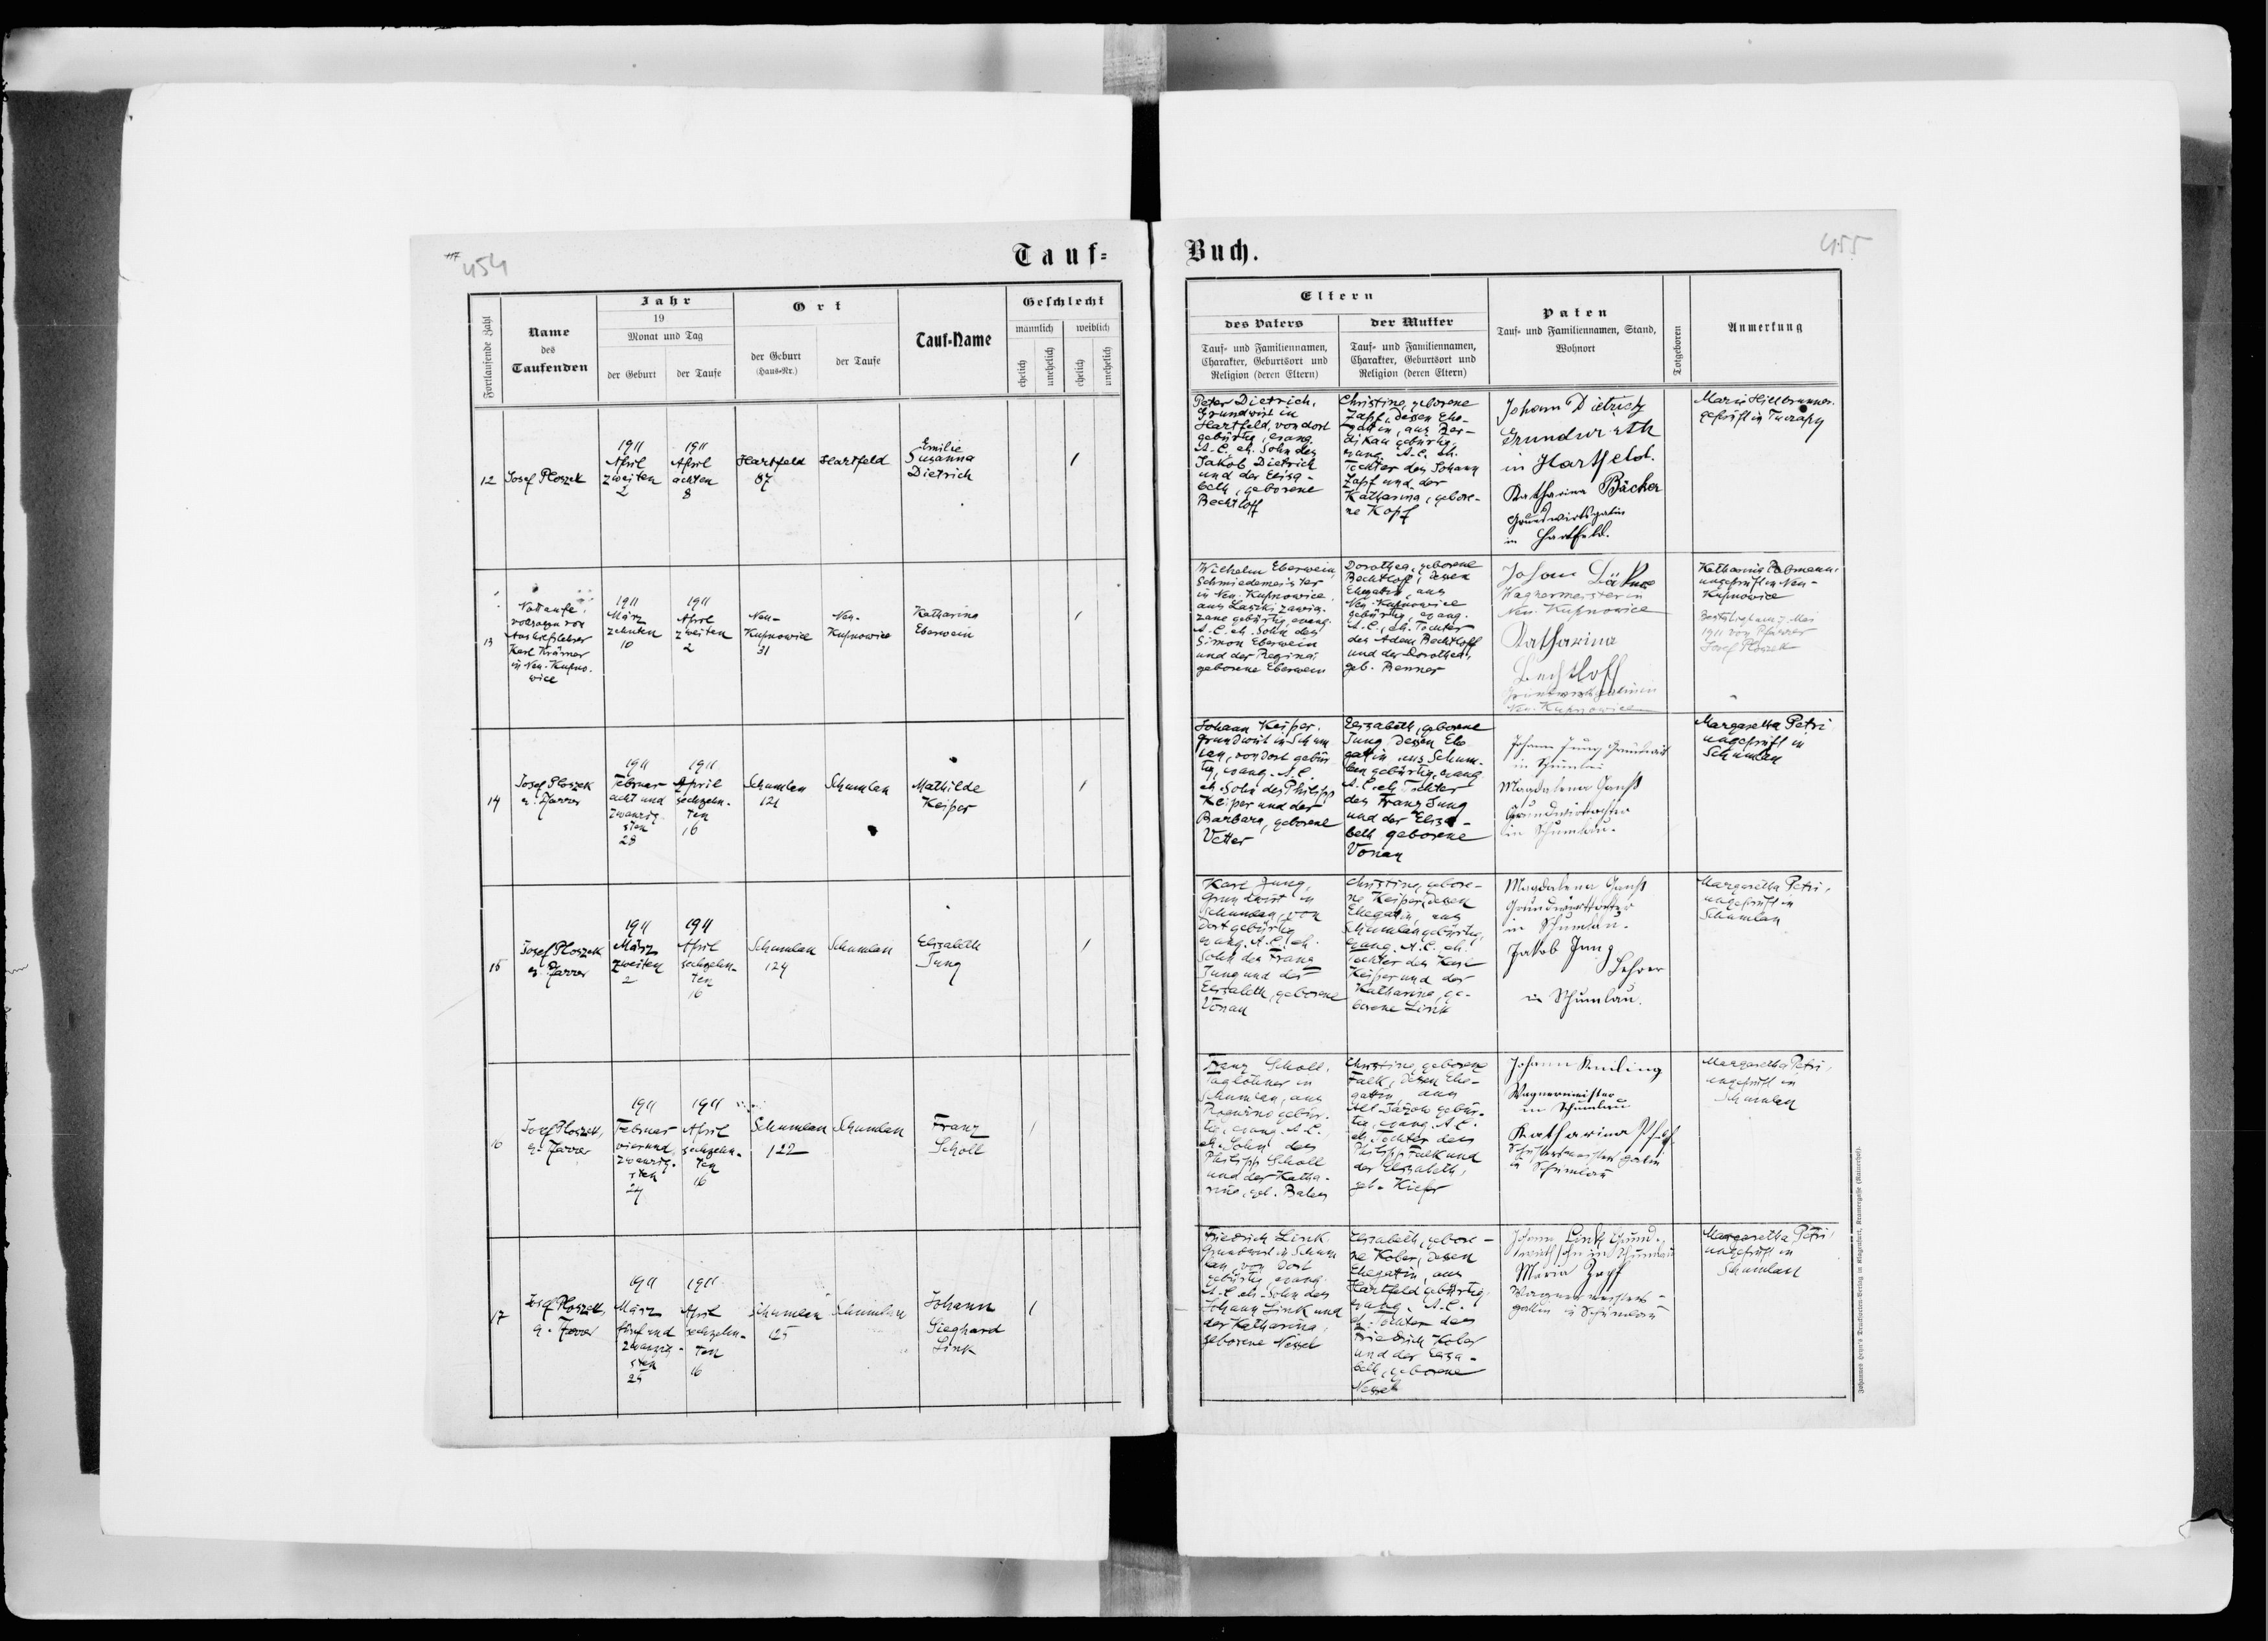 454
Tauf=
Fortlaufende Zahl
Name
des
Taufenden
Jahr
19
Monat und Tag
der Geburt
der Taufe
Ort
der Geburt
(Haus=Nr.)
der Taufe
Tauf=Name
Geschlecht
männlich
weiblich
ehelich
unehelich
ehelich
unehelich
12
Josef Ploszek
1911
April
zweiten
2
1911
April
achten
8
Hartfeld
87
Hartfeld
Emilie
Susanna
Dietrich
13
Nottaufe,
vollzogen von
Aushilfslehrer
Karl Krämer
in Neu-Kupno-
wice
1911
März
zehnten
10
1911
April
zweiten
2
Neu-
Kupnowice
31
Neu-
Kupnowice
Katharina
Eberwein
14
Josef Ploszek
ev. Pfarrer
1911
Februar
acht und
zwanzig-
sten
28
1911
April
sechzehn-
ten
16
Schumlau
121
Schumlau
Mathilde
Keiper
15
Josef Ploszek
ev. Pfarrer
1911
März
zweiten
2
1911
April
sechzehn-
ten
16
Schumlau
124
Schumlau
Elisabeth
Jung
16
Josef Ploszek,
ev. Pfarrer
1911
Februar
vierund
zwanzig-
sten
24
1911
April
sechzehn-
ten
16
Schumlau
122
Schumlau
Franz
Scholl
17
Josef Ploszek,
ev. Pfarrer
1911
März
fünf und
zwanzig-
sten
25
1911
April
sechzehn-
ten
16
Schumlau
125
Schumlau
Johann
Sieghard
Link
Buch.
455
Eltern
des Vaters
Tauf= und Familiennamen,
Charakter, Geburtsort und
Religion (deren Eltern)
der Mutter
Tauf= und Familiennamen,
Charakter, Geburtsort und
Religion (deren Eltern)
Paten
Tauf= und Familiennamen, Stand,
Wohnort
Totgeboren
Anmerkung
Peter Dietrich,
Grundwirt in
Hartfeld, von dort
gebürtig, evang.
A.C. eh. Sohn des
Jakob Dietrich
und der Elisa-
beth, geborene
Bechtloff
Christine, geborene
Zapf, dessen Ehe-
gattin, aus Ber-
dikau gebürtig,
evang. A.C. eh.
Tochter des Johann
Zapf und der
Katharina, gebore-
ne Kopf
Johann Dietrich
Grundwirth
in Hartfeld.
Katharina Bäcker
Grundwirtsgatin
in Hartfeld.
Maria Hillbrunner.
geprüft in
Wilhelm Eberwein,
Schmiedemeister
in Neu-Kupnowice,
aus Laszki zawią-
zane gebürtig, evang.
A.C. eh. Sohn des
Simon Eberwein
und der Regina,
geborene Eberwein
Dorothea, geborene
Bechtloff, dessen
Ehegatin, aus
Neu-Kupnowice
gebürtig, evang.
A.C., eh. Tochter
des Adam Bechtloff
und der Dorothea,
geb. Benner
Johann
Wagnermeister in
Neu-Kupnowice
Katharina
Bechtloff
Grundwirtsgatin in
Neu-Kupnowice
Katharina
ungeprüft in Neu-
Kupnowice
Bestätigt am 7. Mai
1911 von Pfarrer
Josef Ploszek
Johann Keiper,
Grundwirt in Schum
lau, von dort gebür
tig, evang. A.C.
eh. Sohn des Philipp
Keiper und der
Barbara, geborene
Vetter
Elisabeth, geborene
Jung, dessen Ehe
gattin aus Schum-
lau gebürtig, evang.
A.C. eh. Tochter
des Franz Jung
und der Elisa-
beth geborene
Vonau
Johann Jung Grundwirt
in Schumlau
Magdalena Ganß
Grundwirtstochter
in Schumlau.
Margaretha Petri
ungeprüft in
Schumlau
Karl Jung,
Grundwirt in
Schumlau, von
dort gebürtig
evang. A.C. eh.
Sohn des Franz
Jung und der
Elisabeth, geborene
Vonau
Christine, gebore-
ne Keiper, dessen
Ehegatin, aus
Schumlau gebürtig,
evang. A.C. eh.
Tochter des Karl
Keiper und der
Katharina, ge-
borene Link
Magdalena Ganß
Grundwirtstochter
in Schumlau.
Jakob Jung
Lehrer
in Schumlau.
Margaretha Petri,
ungeprüft in
Schumlau
Franz Scholl,
Taglöhner in
Schumlau, aus
gebür-
tig, evang. A.C.
eh. Sohn des
Philipp Scholl
und der Katha-
rina, geb.
Christine, geborene
Falk, dessen Ehe-
gattin, aus
Alt-Jazow gebür-
tig, evang. A.C.
eh. Tochter des
Philipp Falk und
der Elisabeth,
geb. Kiefer
Johann
Wagnermeister
in Schumlau
Katharina
Schustermeisters gatin
in Schumlau
Margaretha Petri,
ungeprüft in
Schumlau
Friedrich Link,
Grundwirt in Schum
lau, von dort
gebürtig, evang.
A.C. eh. Sohn des
Johann Link und
der Katharina,
geborene Nessel
Elisabeth, gebore-
ne Kober, dessen
Ehegatin, aus
Hartfeld gebürtig,
evang. A.C.
eh. Tochter des
Friedrich Kober
und der Elisa-
beth, geborene
Nessel
Johann Link Grund-
wirthsohn in Schumlau
Maria Zapf
Wagnermeisters-
gattin in Schumlau
Margaretha Petri,
ungeprüft in
Schumlau